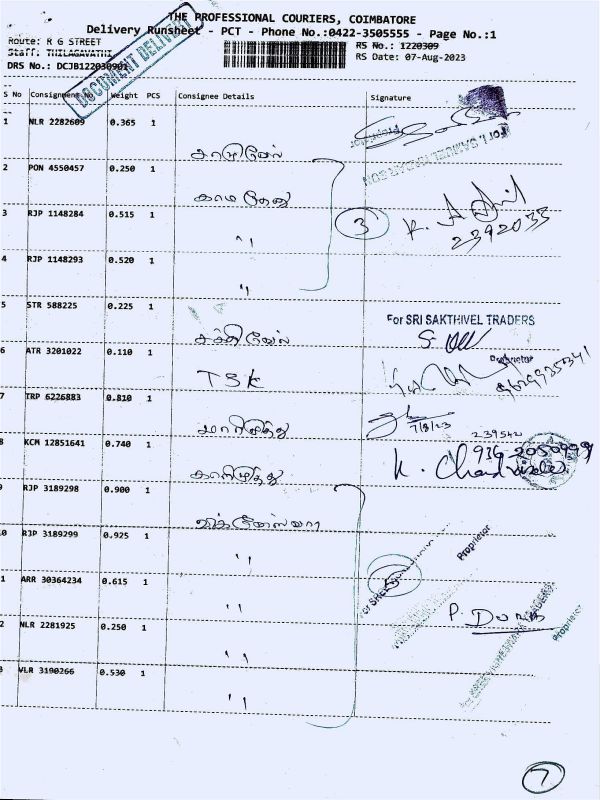 THE PROFESSIONAL COURIERS, COIMBATORE
Delivery Runsheet - PCT - Phone No.:0422-3505555 - Page No.:1
Route: R G STREET
RS No.: 1220309
Staff: THILAGAVATHI
RS Date: 07-Aug-2023
DRS No.: DCJB122030901
DOCUMENT DELIVERY
S No Consignment No Weight PCS Consignee Details Signature
1 NLR 2282609 0.365 1
Proprietor
2 PON 4550457 0.250 1
காமதேனு
3 RJP 1148284 0.515 1
3
K.
2392033
"
4 RJP 1148293 0.520 1
"
5 STR 588225 0.225 1
For SRI SAKTHIVEL TRADERS
சக்திவேல்
6 ATR 3201022 0.110 1
Proprietor
TSK
7 TRP 6226883 0.810 1
7/8/23
மாரிமுத்து
8 KCM 12851641 0.740 1
239542
K.
காளிமுத்து
9 RJP 3189298 0.900 1
விக்னேஸ்வரா
10 RJP 3189299 0.925 1
Proprietor
"
5
11 ARR 30364234 0.615 1
"
P.
12 NLR 2281925 0.250 1
Proprietor
"
13 VLR 3190266 0.530 1
"
7